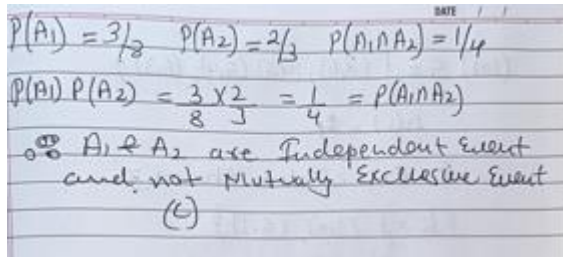 DATE / /
P(A1) = 3/8 P(A2) = 2/3 P(A1∩A2) = 1/4
P(A1) P(A2) = 3/8 × 2/3 = 1/4 = P(A1∩A2)
∴ A1 & A2 are Independent Event
and not Mutually Exclusive Event
(C)